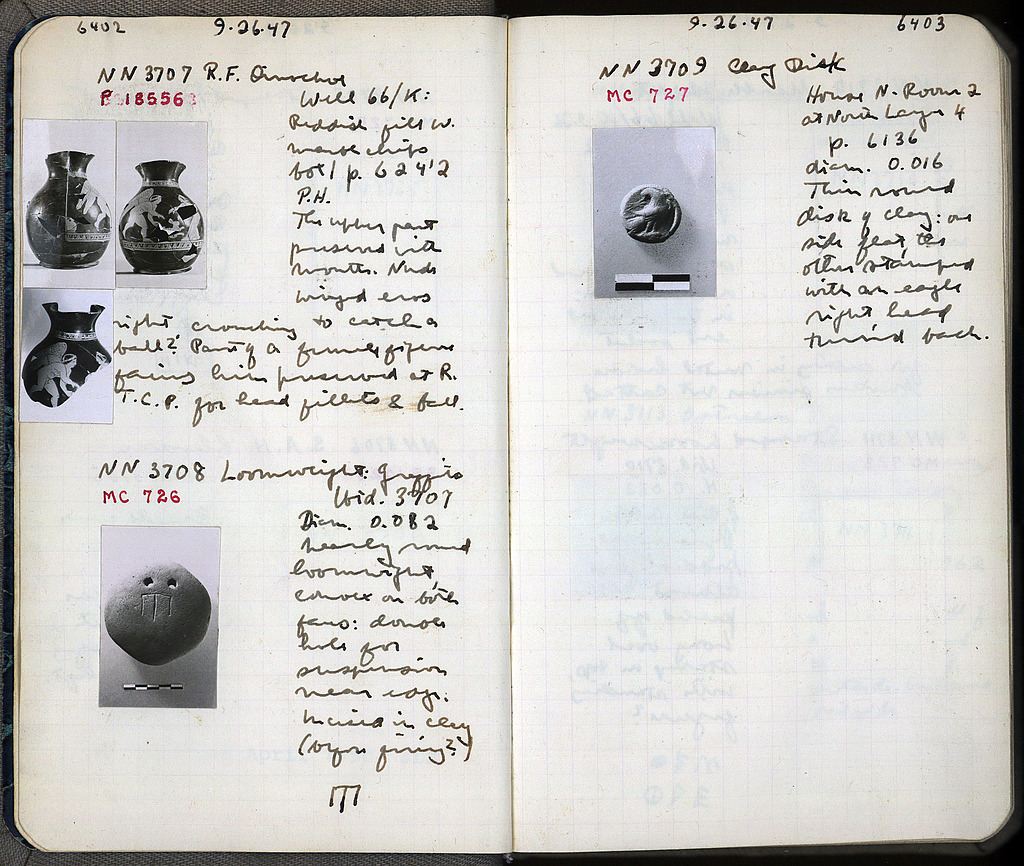 6402 9.26.47
NN 3707 R.F. Oinochoe
P 18556
Well 66/K:
Reddish fill w.
marble chips
bot/ p. 6242
P.H.
The upper part
preserved with
mouth. Nude
winged eros
right crouching to catch a
ball? Part of a female figure
facing him preserved at R.
T.C.P. for head fillets & ball.
NN 3708 Loomweight: graffito
MC 726
Ibid. 3707
Diam. 0.082
Nearly round
loomweight,
convex on both
faces: double
hole for
suspension
near edge.
Incised in clay
(before firing?)
9.26.47 6403
NN 3709 Clay Disk
MC 727
House N. Room 2
at North Layer 4
p. 6136
diam. 0.016
Thin round
disk of clay: one
side flat, the
other stamped
with an eagle
right head
turned back.